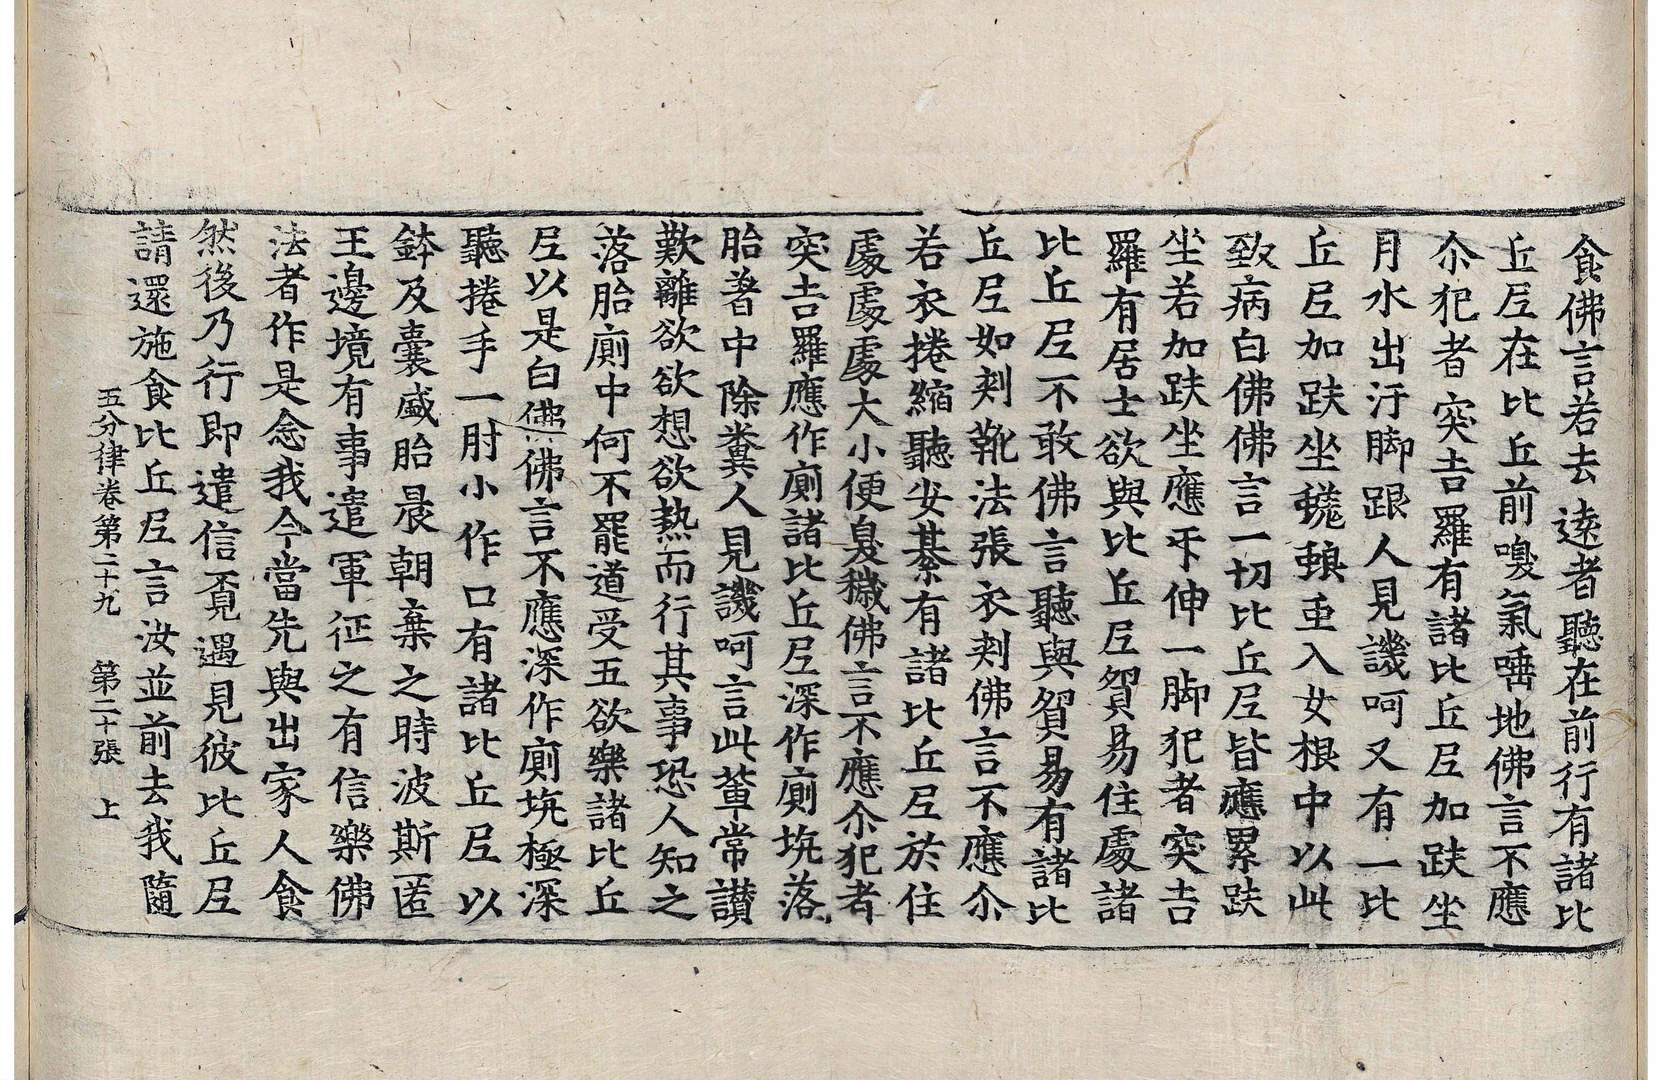 食佛言若去遠者聽在前行有諸比
丘尼在比丘前嗅氣唾地佛言不應
尒犯者突吉羅有諸比丘尼加趺坐
月水出汙脚跟人見譏呵又有一比
丘尼加趺坐蟣頼重入女根中以此
致病白佛佛言一切比丘尼皆應累趺
坐若加趺坐應伸一脚犯者突吉
羅有居士欲與比丘尼貿易住處諸
比丘尼不敢佛言聽與貿易有諸比
丘尼如剗靴法張衣剗佛言不應尒
若衣捲縮聽安綦有諸比丘尼於住
處處處大小便臭穢佛言不應尒犯者
突吉羅應作廁諸比丘尼深作廁坑落
胎著中除糞人見譏呵言此輩常讃
歎離欲欲想欲熱而行其事恐人知之
落胎廁中何不罷道受五欲樂諸比丘
尼以是白佛佛言不應深作廁坑極深
聽捲手一肘小作口有諸比丘尼以
鉢及囊盛胎晨朝棄之時波斯匿
王邊境有事遣軍征之有信樂佛
法者作是念我今當先與出家人食
然後乃行即遣信覔遇見彼比丘尼
請還施食比丘尼言汝並前去我隨
五分律卷第二十九　第二十張　上